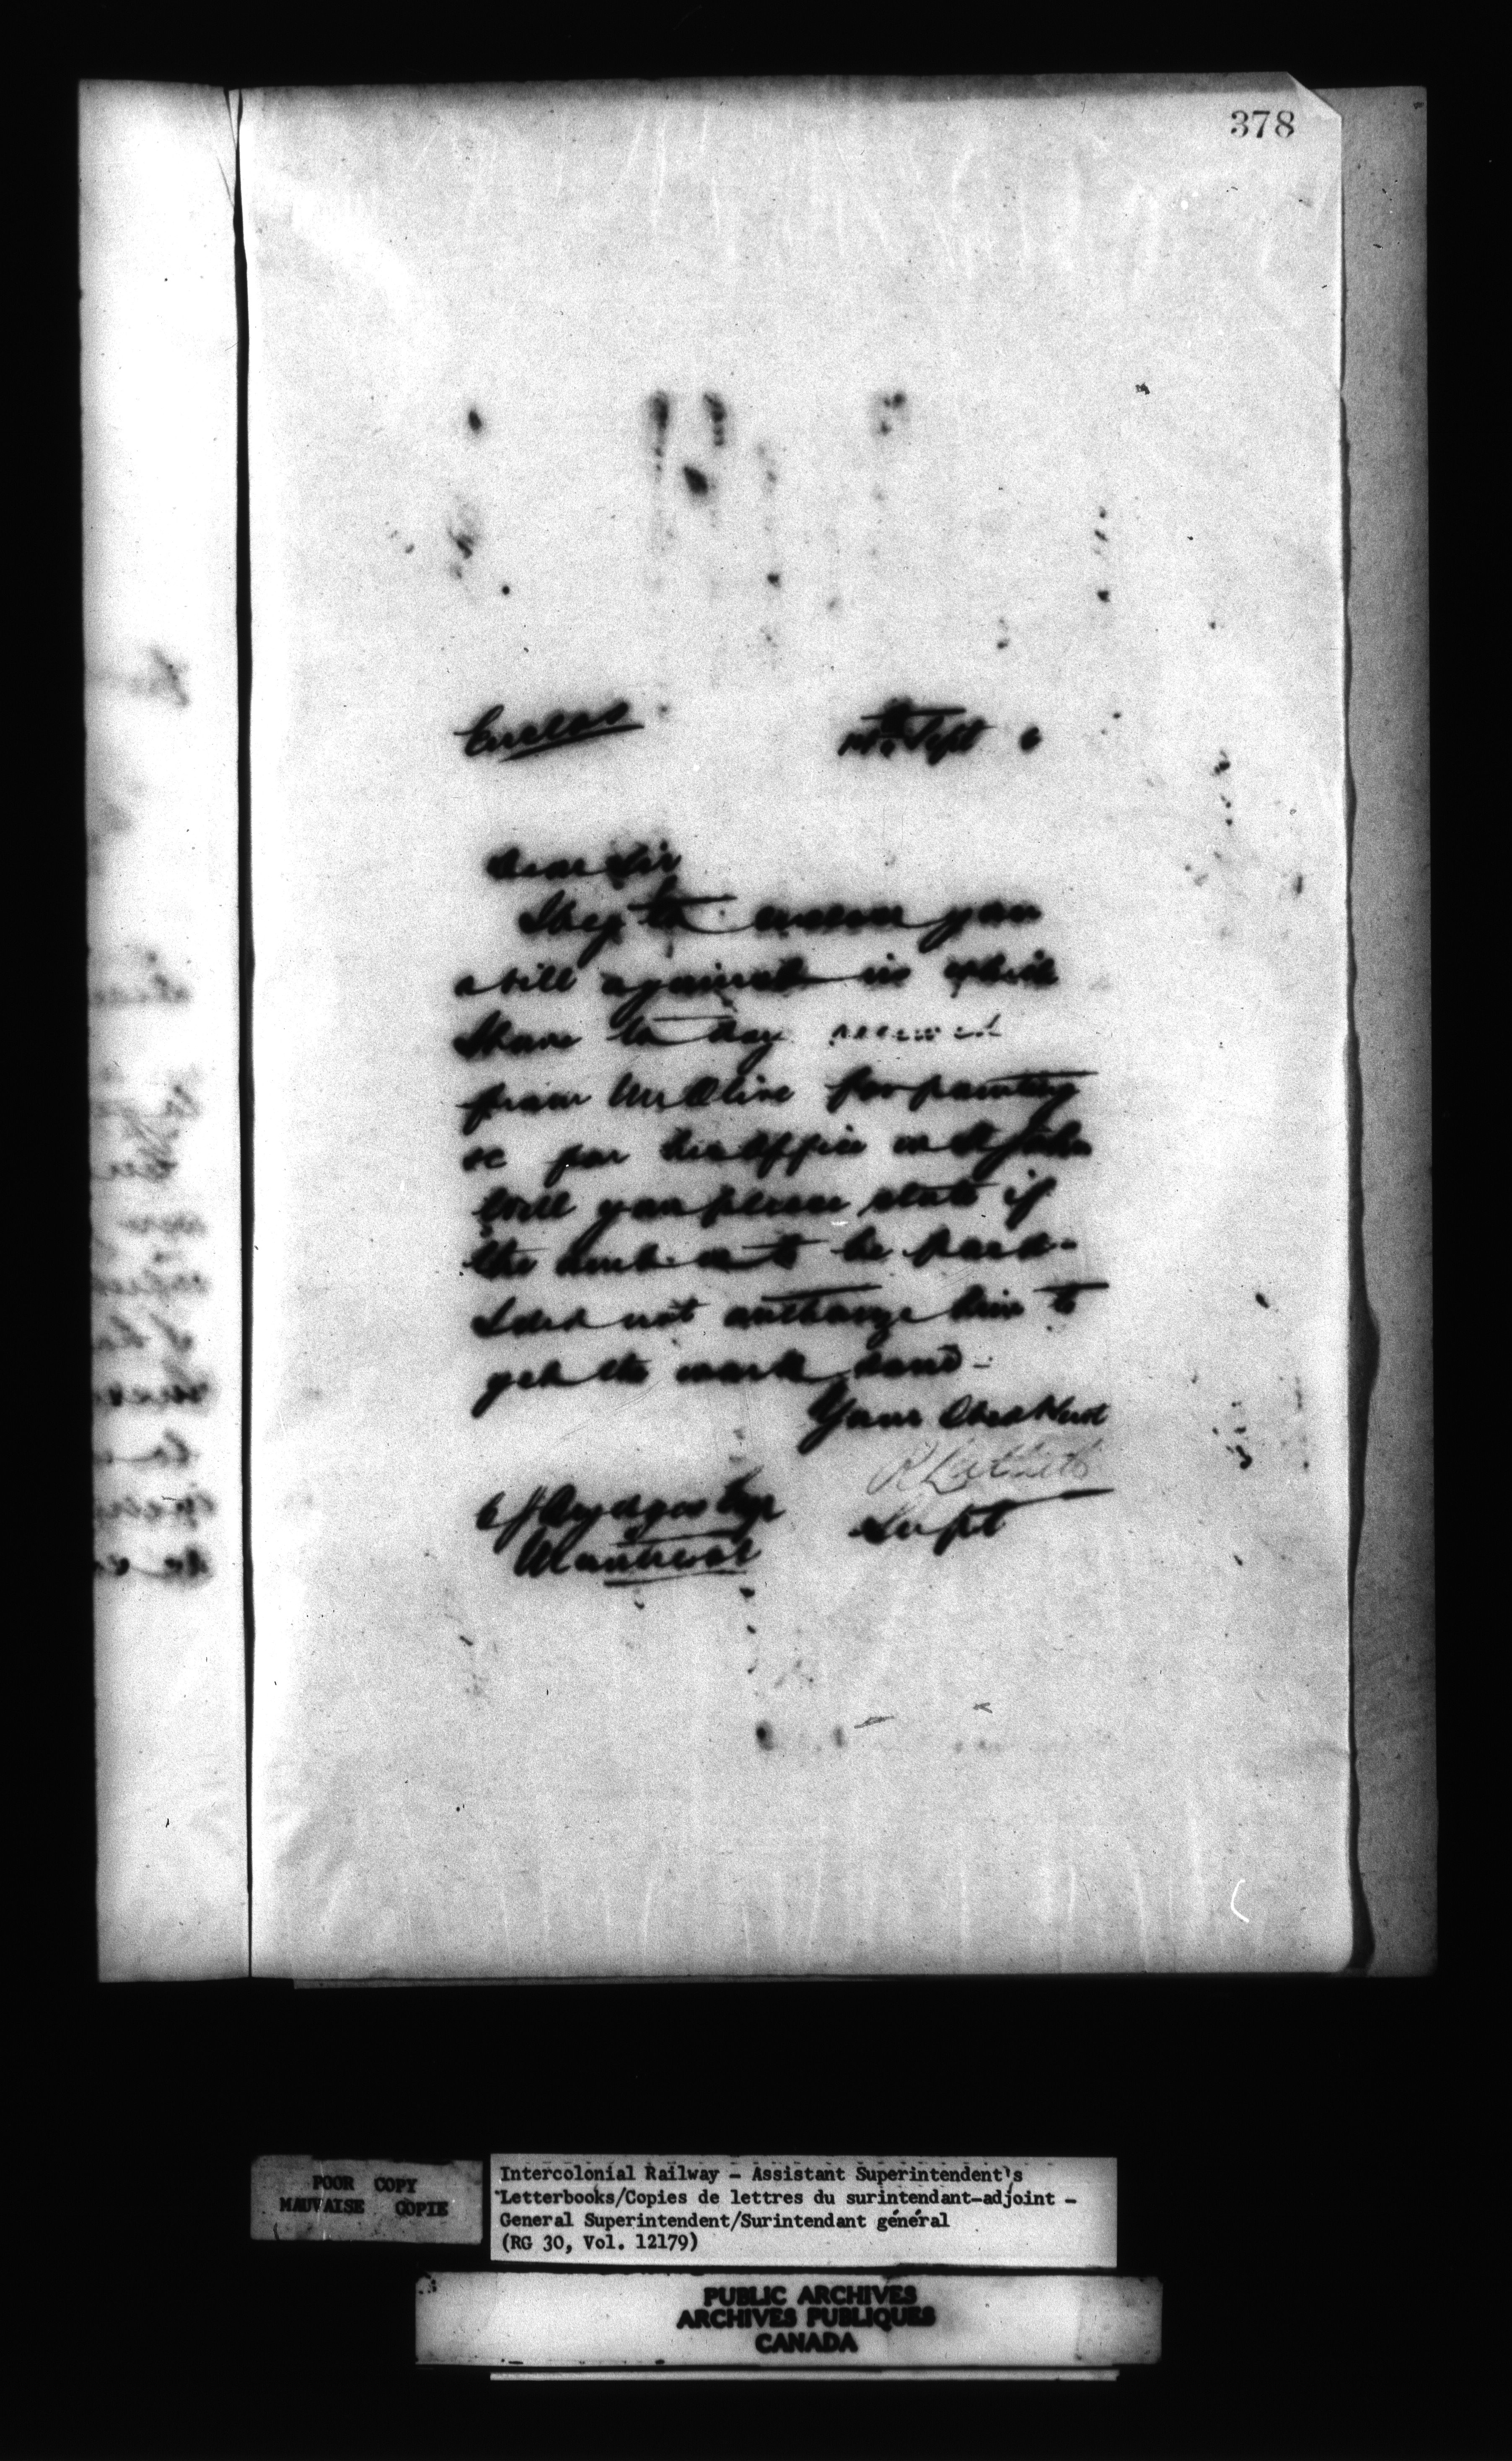 378
Enclos
Sept 6
Dear Sir
I beg to enclose you
a bill against us which
I have to day received
from Mr Olive for painting
&c for his Office in St John
Will you please state if
the amt is to be paid -
I did not authorize him to
get the work done -
Your Obed Servt
R Luttrell
Supt
C J Brydges Esqr
Montreal
POOR COPY
MAUVAISE COPIE
Intercolonial Railway - Assistant Superintendent's
Letterbooks/Copies de lettres du surintendant-adjoint -
General Superintendent/Surintendant général
(RG 30, Vol. 12179)
PUBLIC ARCHIVES
ARCHIVES PUBLIQUES
CANADA